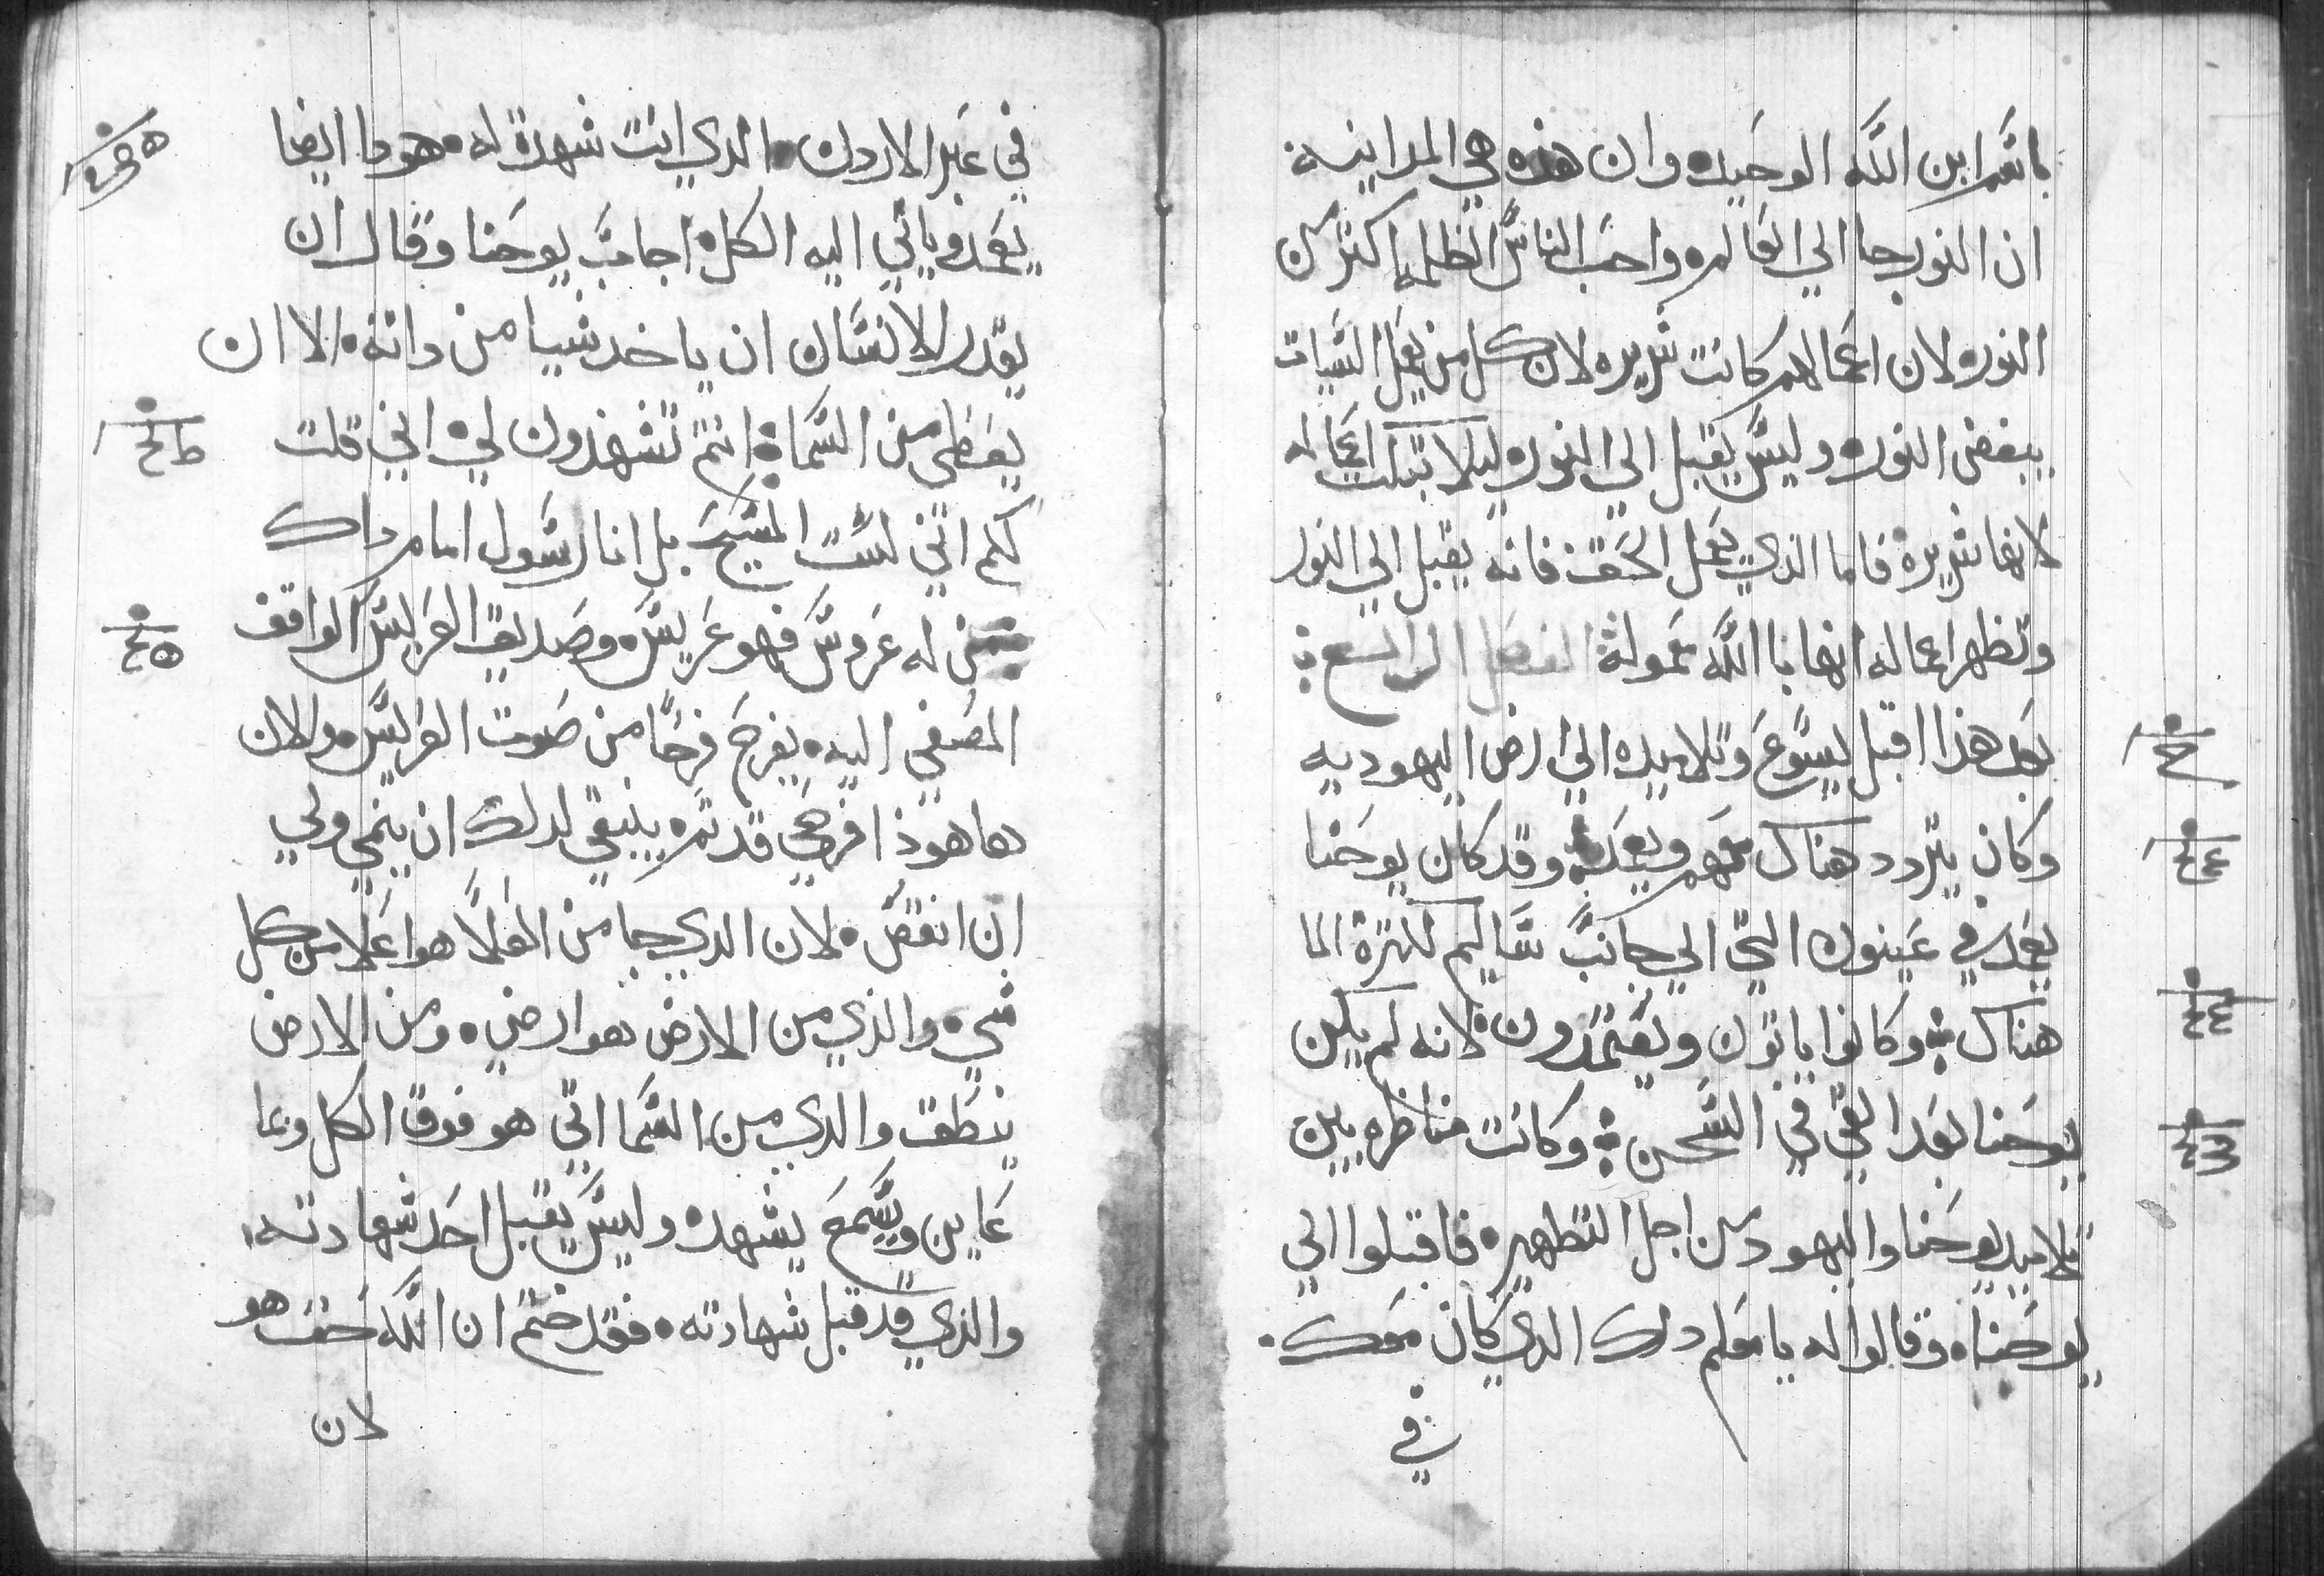 باسم ابن الله الوحيد. وان هذه هي المداينه
ان النور جا الي العالم. واحب الناس الظلمه اكتر من
النور. لان اعمالهم كانت شريره لان كل من يعمل السيات
يبغض النور. وليس يقبل الي النور. ليلا تبكت اعماله
لانها شريرة فاما الذي يعمل الحق فانه يقبل الي النور
وتظهر اعماله انها باالله معمولة الفصل الرابع
بعد هذا اقبل يسوع وتلاميده الي ارض اليهوديه
وكان يتردد هناك معهم ويعمد. وقد كان يوحنا
يعمد في عينون التي الي جانب ساليم لكترة الما
هناك وكانوا ياتون ويعتمدون لانه لم يكن
يوحنا بعد القي في السجن وكانت مناظره بين
تلاميد يوحنا واليهود من اجل التطهير. فاقبلوا الي
يوحنا. وقالوا له يا معلم داك الدي كان معك.
في
في عبر الاردن. الدي انت شهدة له. هودا ايضا
يعمد وياتي اليه الكل. اجاب يوحنا وقال ان
يقدر الانسان ان ياخد شيا من داته. الا ان
يعطى من السماة انتم تشهدون لي. اني قلت
لكم انني لست المسيح بل انا رسول امام داك
من له عروس فهو عريس. وصديق العريس الواقف
المصغي اليه. يفرح فرحا من صوت العريس. والان
هاهوذا فرحي قد تم. ينبغي لدلك ان ينمي ولي
ان انقص. لان الدي جا من العلا هو اعلا من كل
شي. والذي من الارض هو ارضي. ومن الارض
ينطق والدي من السما اتي هو فوق الكل وبما
عاين وسمع يشهد. وليس يقبل احد شهادته.
والذي قد قبل شهادته. فقد ختم ان الله حق هو
لان